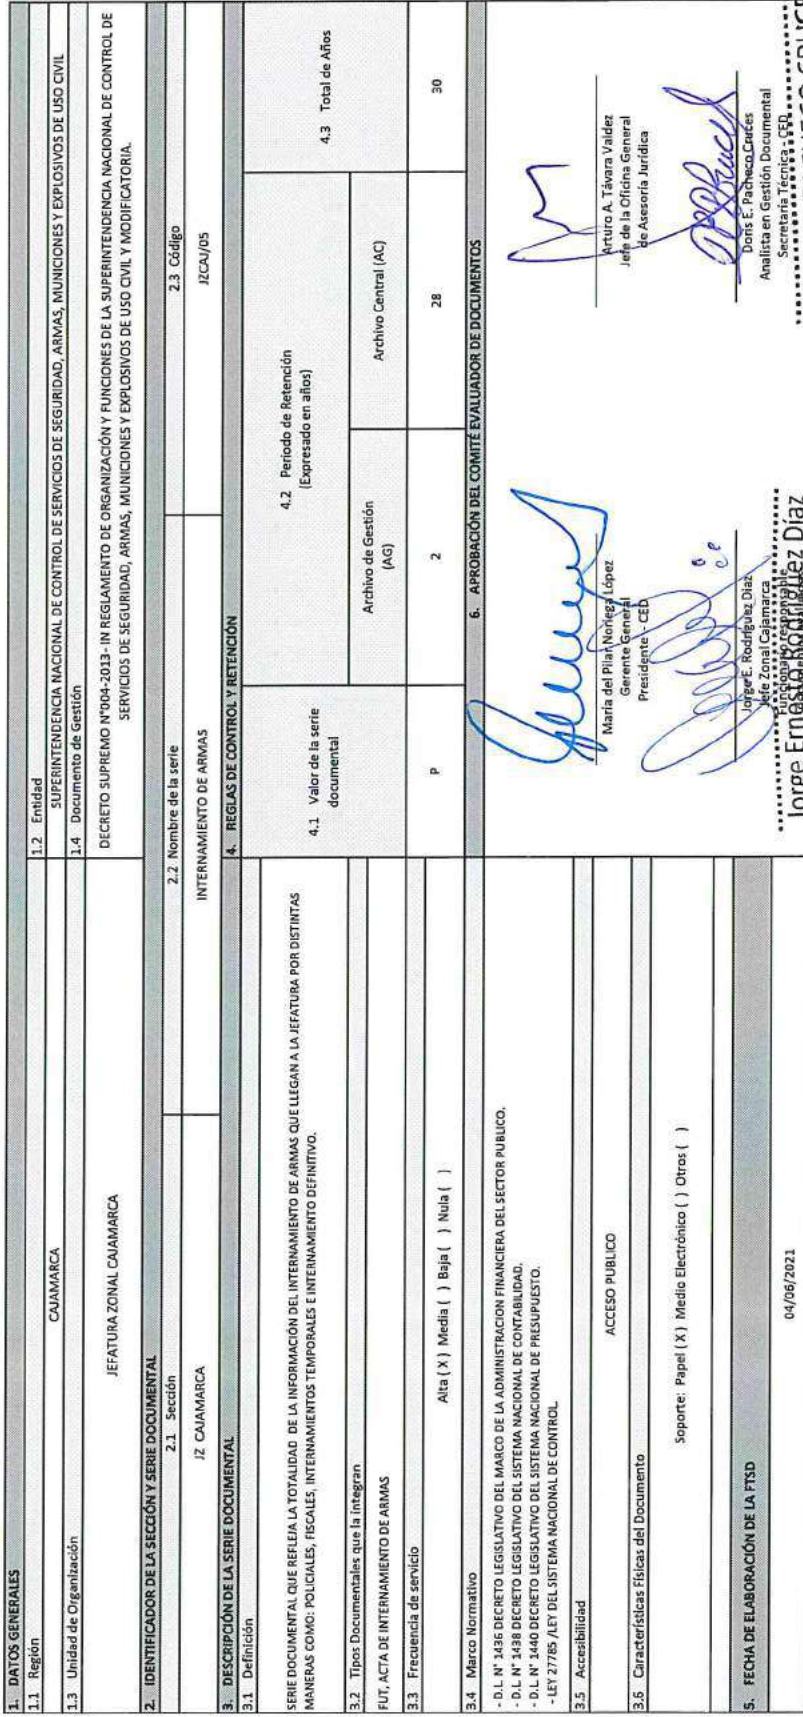 1. DATOS GENERALES
1.1 Región
1.2 Entidad
CAJAMARCA
SUPERINTENDENCIA NACIONAL DE CONTROL DE SERVICIOS DE SEGURIDAD, ARMAS, MUNICIONES Y EXPLOSIVOS DE USO CIVIL
1.3 Unidad de Organización
1.4 Documento de Gestión
JEFATURA ZONAL CAJAMARCA
DECRETO SUPREMO N°004-2013- IN REGLAMENTO DE ORGANIZACIÓN Y FUNCIONES DE LA SUPERINTENDENCIA NACIONAL DE CONTROL DE
SERVICIOS DE SEGURIDAD, ARMAS, MUNICIONES Y EXPLOSIVOS DE USO CIVIL Y MODIFICATORIA.
2. IDENTIFICADOR DE LA SECCIÓN Y SERIE DOCUMENTAL
2.1 Sección
2.2 Nombre de la serie
2.3 Código
JZ CAJAMARCA
INTERNAMIENTO DE ARMAS
JZCAJ/05
3. DESCRIPCIÓN DE LA SERIE DOCUMENTAL
3.1 Definición
SERIE DOCUMENTAL QUE REFLEJA LA TOTALIDAD DE LA INFORMACIÓN DEL INTERNAMIENTO DE ARMAS QUE LLEGAN A LA JEFATURA POR DISTINTAS
MANERAS COMO: POLICIALES, FISCALES, INTERNAMIENTOS TEMPORALES E INTERNAMIENTO DEFINITIVO.
3.2 Tipos Documentales que la integran
FUT, ACTA DE INTERNAMIENTO DE ARMAS
3.3 Frecuencia de servicio
Alta ( X ) Media ( ) Baja ( ) Nula ( )
3.4 Marco Normativo
- D.L. N° 1436 DECRETO LEGISLATIVO DEL MARCO DE LA ADMINISTRACION FINANCIERA DEL SECTOR PUBLICO.
- D.L. N° 1438 DECRETO LEGISLATIVO DEL SISTEMA NACIONAL DE CONTABILIDAD.
- D.L. N° 1440 DECRETO LEGISLATIVO DEL SISTEMA NACIONAL DE PRESUPUESTO.
- LEY 27785 /LEY DEL SISTEMA NACIONAL DE CONTROL.
3.5 Accesibilidad
ACCESO PUBLICO
3.6 Características Físicas del Documento
Soporte: Papel ( X ) Medio Electrónico ( ) Otros ( )
5. FECHA DE ELABORACIÓN DE LA FTSD
04/06/2021
4. REGLAS DE CONTROL Y RETENCIÓN
4.1 Valor de la serie
documental
4.2 Periodo de Retención
(Expresado en años)
4.3 Total de Años
Archivo de Gestión
(AG)
Archivo Central (AC)
P
2
28
30
6. APROBACIÓN DEL COMITÉ EVALUADOR DE DOCUMENTOS
María del Pilar Noriega López
Gerente General
Presidente - CED
Arturo A. Távara Valdez
Jefe de la Oficina General
de Asesoría Jurídica
Jorge E. Rodríguez Diaz
Jefe Zonal Cajamarca
Funcionario responsable
Jorge Ernesto Rodríguez Díaz
Doris E. Pacheco Cruces
Analista en Gestión Documental
Secretaria Técnica - CED